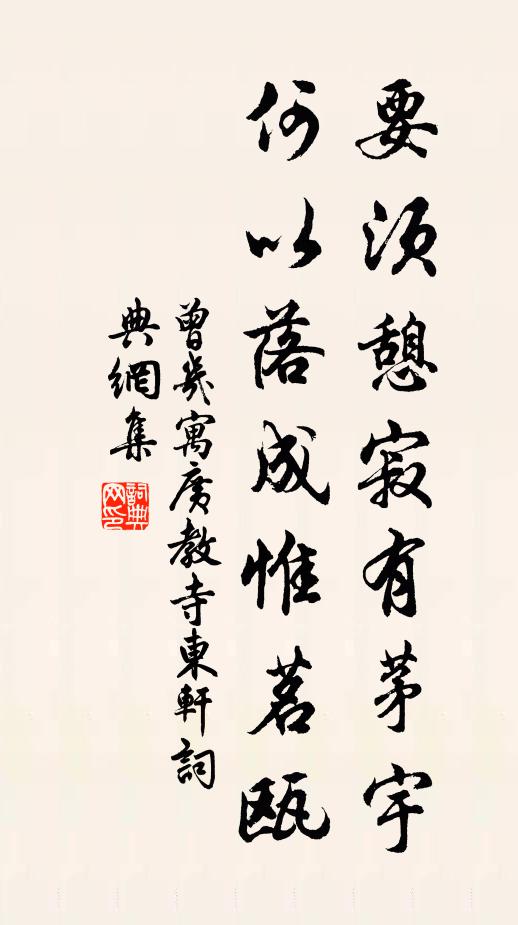 要須憩寂有茅宇
何以落成惟茗瓯
曾幾寓廣教寺東軒詞
典網集
詞典网印